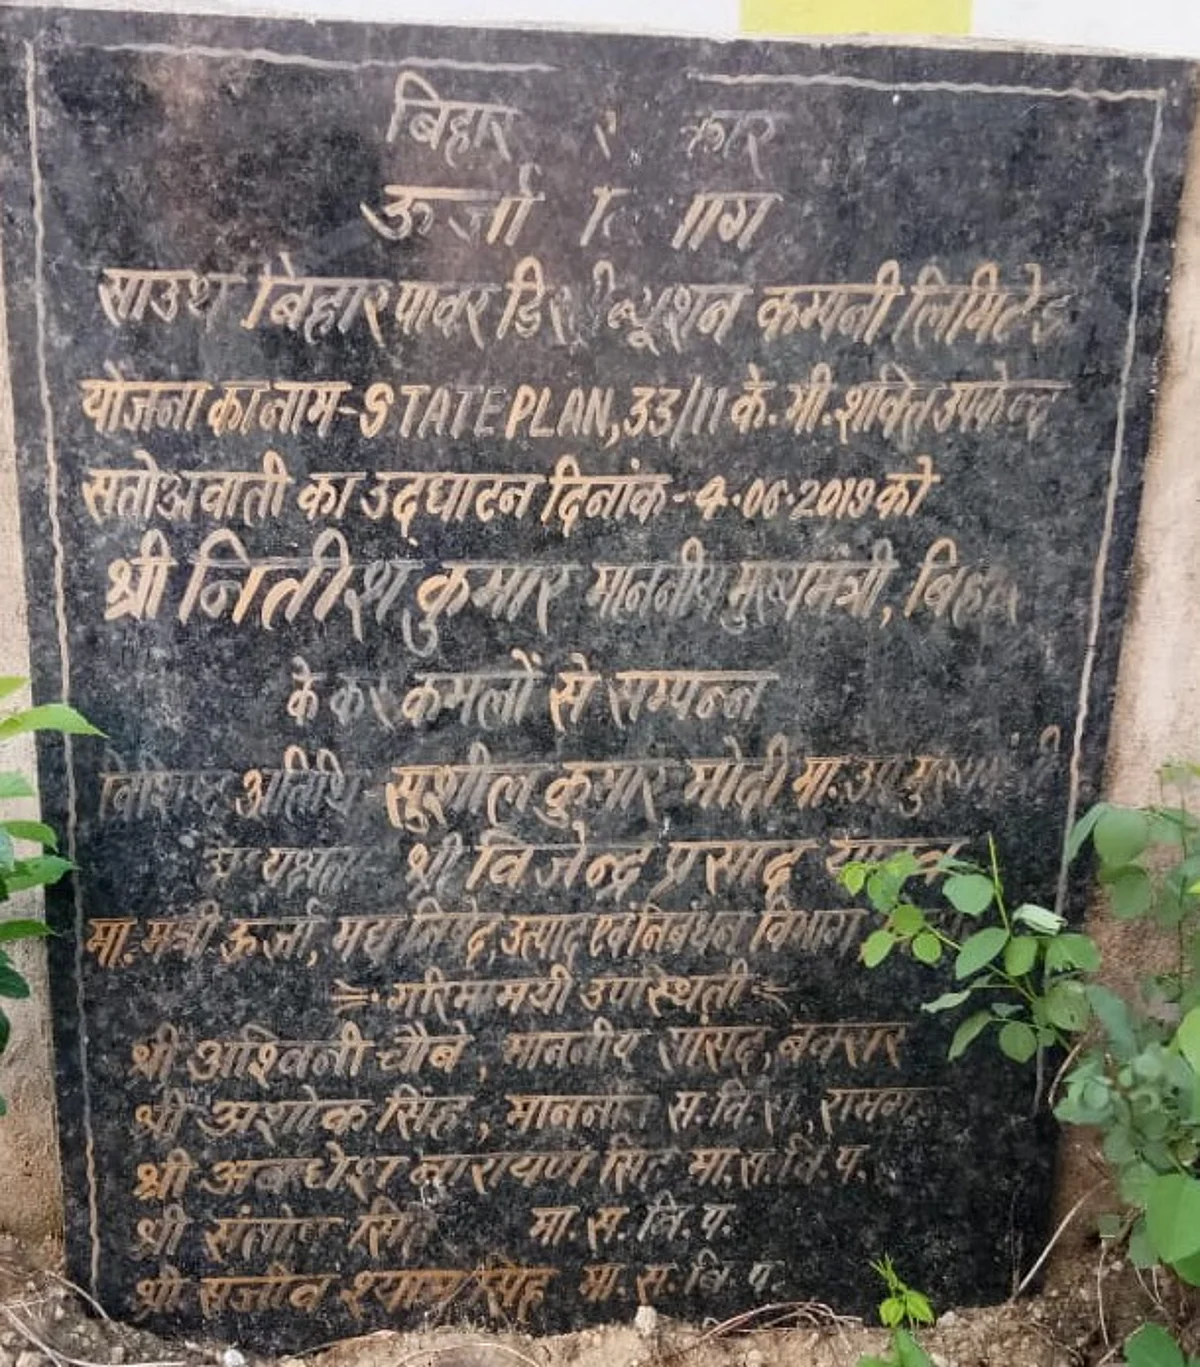 बिहार सरकार
ऊर्जा विभाग
साउथ बिहार पावर डिस्ट्रीब्यूशन कम्पनी लिमिटेड
योजना का नाम-STATE PLAN, 33/11 के.भी.शक्ति उपकेन्द्र
सतोअवाती का उद्घाटन दिनांक-4.06.2019 को
श्री नितीश कुमार माननीय मुख्यमंत्री, बिहार
के कर कमलों से सम्पन्न
विशिष्ट अतिथि-सुशील कुमार मोदी मा. उप मुख्यमंत्री
अध्यक्षता श्री विजेन्द्र प्रसाद यादव
मा. मंत्री ऊर्जा, मद्य निषेद, उत्पाद एवं निबंधन विभाग
गरिमामयी उपस्थिती
श्री अश्विनी चौबे, माननीय सांसद, बक्सर
श्री अशोक सिंह, माननीय स.वि.स.,
श्री अवधेश नारायण सिंह मा.स.वि.प.
श्री संतोष सिंह मा.स.वि.प.
श्री संजीव श्याम सिंह मा.स.वि.प.